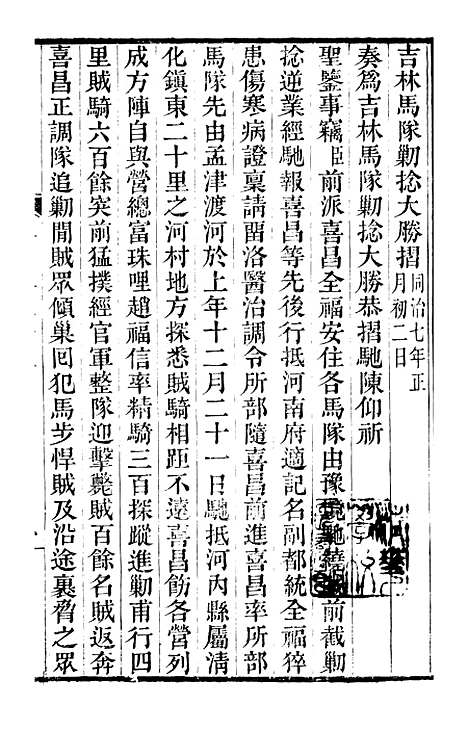 吉林馬隊勦捻大勝摺同治七年正月初二日
奏爲吉林馬隊勦捻大勝恭摺馳陳仰祈
聖鑒事竊臣前派喜昌全福安住各馬隊由豫境馳繞前截勦
捻逆業經馳報喜昌等先後行抵河南府適記名副都統全福猝
患傷寒病證稟請留洛醫治調令所部隨喜昌前進喜昌率所部
馬隊先由孟津渡河於上年十二月二十一日馳抵河內縣屬清
化鎮東二十里之河村地方探悉賊騎相距不遠喜昌飭各營列
成方陣自與營總富珠哩趙福信率精騎三百探蹤進勦甫行四
里賊騎六百餘突前猛撲經官軍整隊迎擊斃賊百餘名賊返奔
喜昌正調隊追勦聞賊眾傾巢回犯馬步悍賊及沿途裹脅之眾